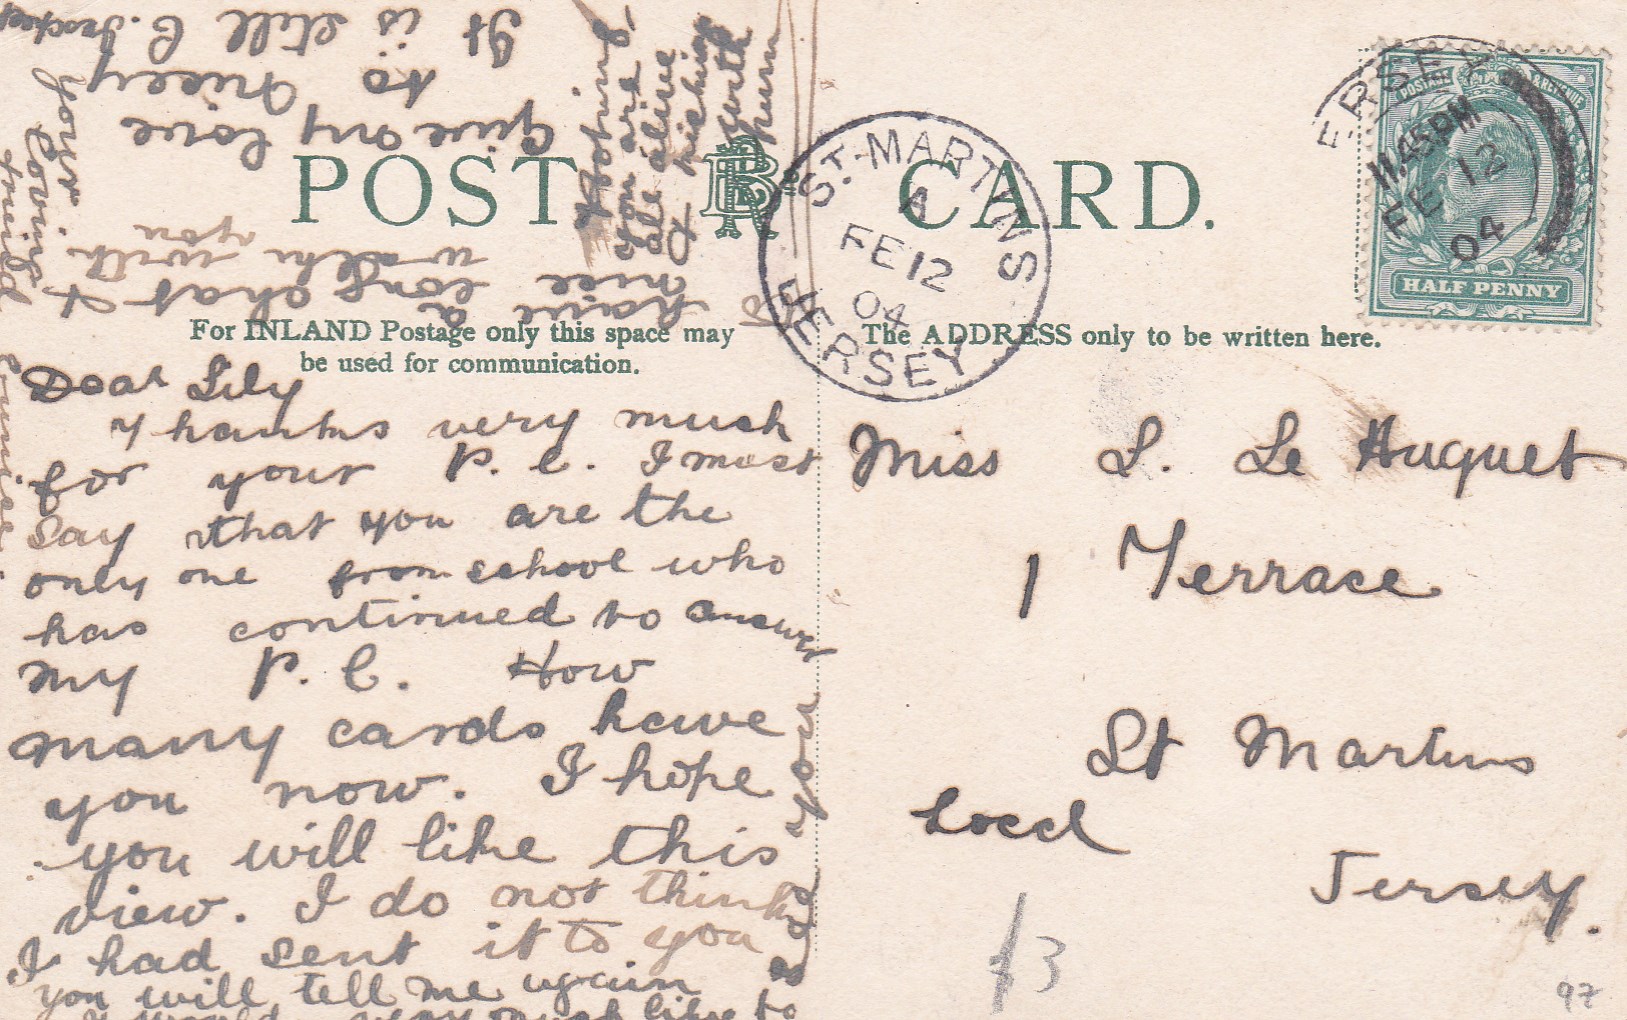 POST CARD.
For INLAND Postage only this space may
be used for communication.
The ADDRESS only to be written here.
Dear Lily
Thanks very much
for your P. C. I must
say that you are the
only one from school who
has continued to answer
my P. C. How
many cards have
you now. I hope
you will like this
view. I do not think
I had sent it to you
you will tell me again
I would very much like to
have a
nice long chat &
walk with
you
Give my love
to Nicey
It is still C.
your
loving
friend
Eunice.
Hoping
you are
all alive
& kicking
with
Miss L. Le Huquet
1 Terrace
St Martins
Local
Jersey.
ST. MARTINS
A
FE 12
04
JERSEY
ERSEY
11.45PM
FE 12
04
POSTAGE & REVENUE
HALF PENNY
£3
97